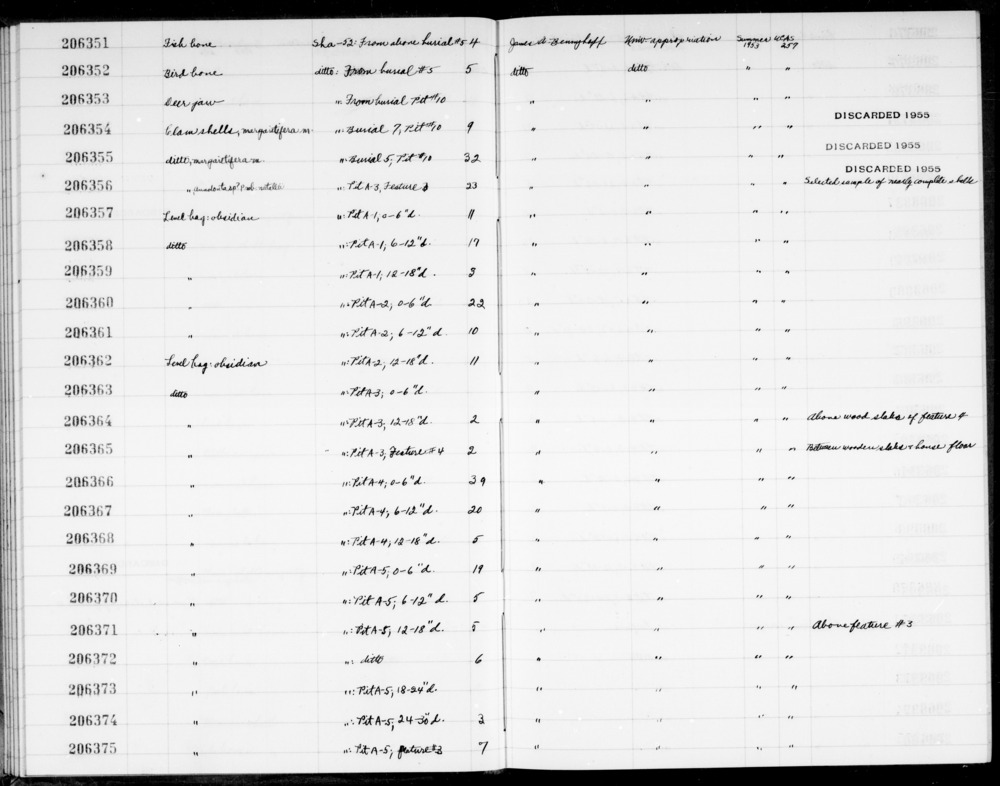 206351 Fish bone Sha-52: From above burial #5 4 James A. Bennyhoff Univ. appropriation Summer 1953 UCAS 257
206352 Bird bone ditto: From burial #5 5 ditto ditto " "
206353 Deer jaw ": From burial Pit #10 " " " "
206354 Clam shells, margaritifera m. ": Burial 7, Pit #10 9 " " " " DISCARDED 1955
206355 ditto, margaritifera m. ": Burial 5, Pit #10 32 " " " " DISCARDED 1955
DISCARDED 1955
206356 " ": Pit A-3, Feature 3 23 " " " " Selected sample of nearly complete shells
206357 Level bag: obsidian ": Pit A-1, 0-6"d. 11 " " " "
206358 ditto ": Pit A-1; 6-12"d. 17 " " " "
206359 " ": Pit A-1; 12-18"d. 3 " " " "
206360 " ": Pit A-2; 0-6"d. 22 " " " "
206361 " ": Pit A-2; 6-12"d. 10 " " " "
206362 Level bag: obsidian ": Pit A-2; 12-18"d. 11 " " " "
206363 ditto ": Pit A-3; 0-6"d. " " " "
206364 " ": Pit A-3; 12-18"d. 2 " " " " Above wood slabs of feature 4
206365 " ": Pit A-3, Feature #4 2 " " " " Between wooden slabs & house floor
206366 " ": Pit A-4; 0-6"d. 39 " " " "
206367 " ": Pit A-4; 6-12"d. 20 " " " "
206368 " ": Pit A-4; 12-18"d. 5 " " " "
206369 " ": Pit A-5; 0-6"d. 19 " " " "
206370 " ": Pit A-5; 6-12"d. 5 " " " "
206371 " ": Pit A-5; 12-18"d. 5 " " " " Above feature #3
206372 " ": ditto 6 " " " "
206373 " ": Pit A-5; 18-24"d. " " " "
206374 " ": Pit A-5; 24-30"d. 3 " " " "
206375 " ": Pit A-5; feature #3 7 " " " "